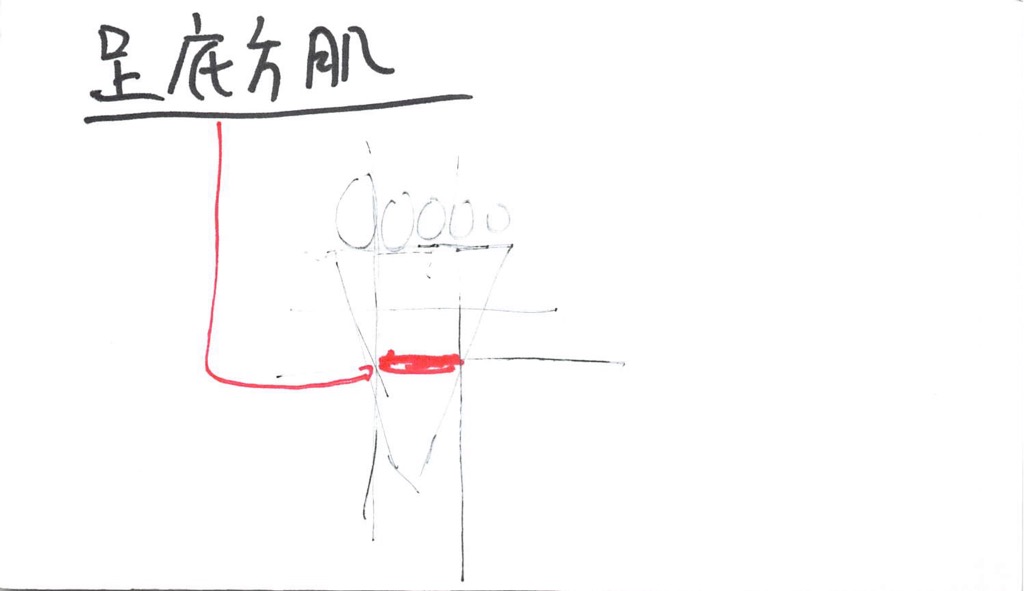 足底方肌